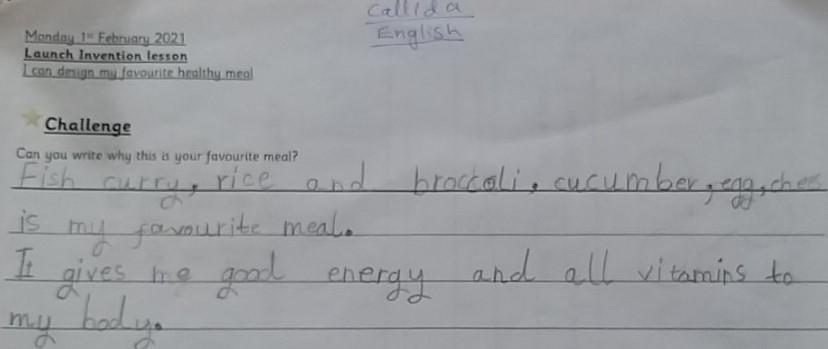 Callida
English
Monday 1st February 2021
Launch Invention lesson
I can design my favourite healthy meal
Challenge
Can you write why this is your favourite meal?
Fish curry, rice and broccoli, cucumber, egg, chees
is my favourite meal.
It gives me good energy and all vitamins to
my body.